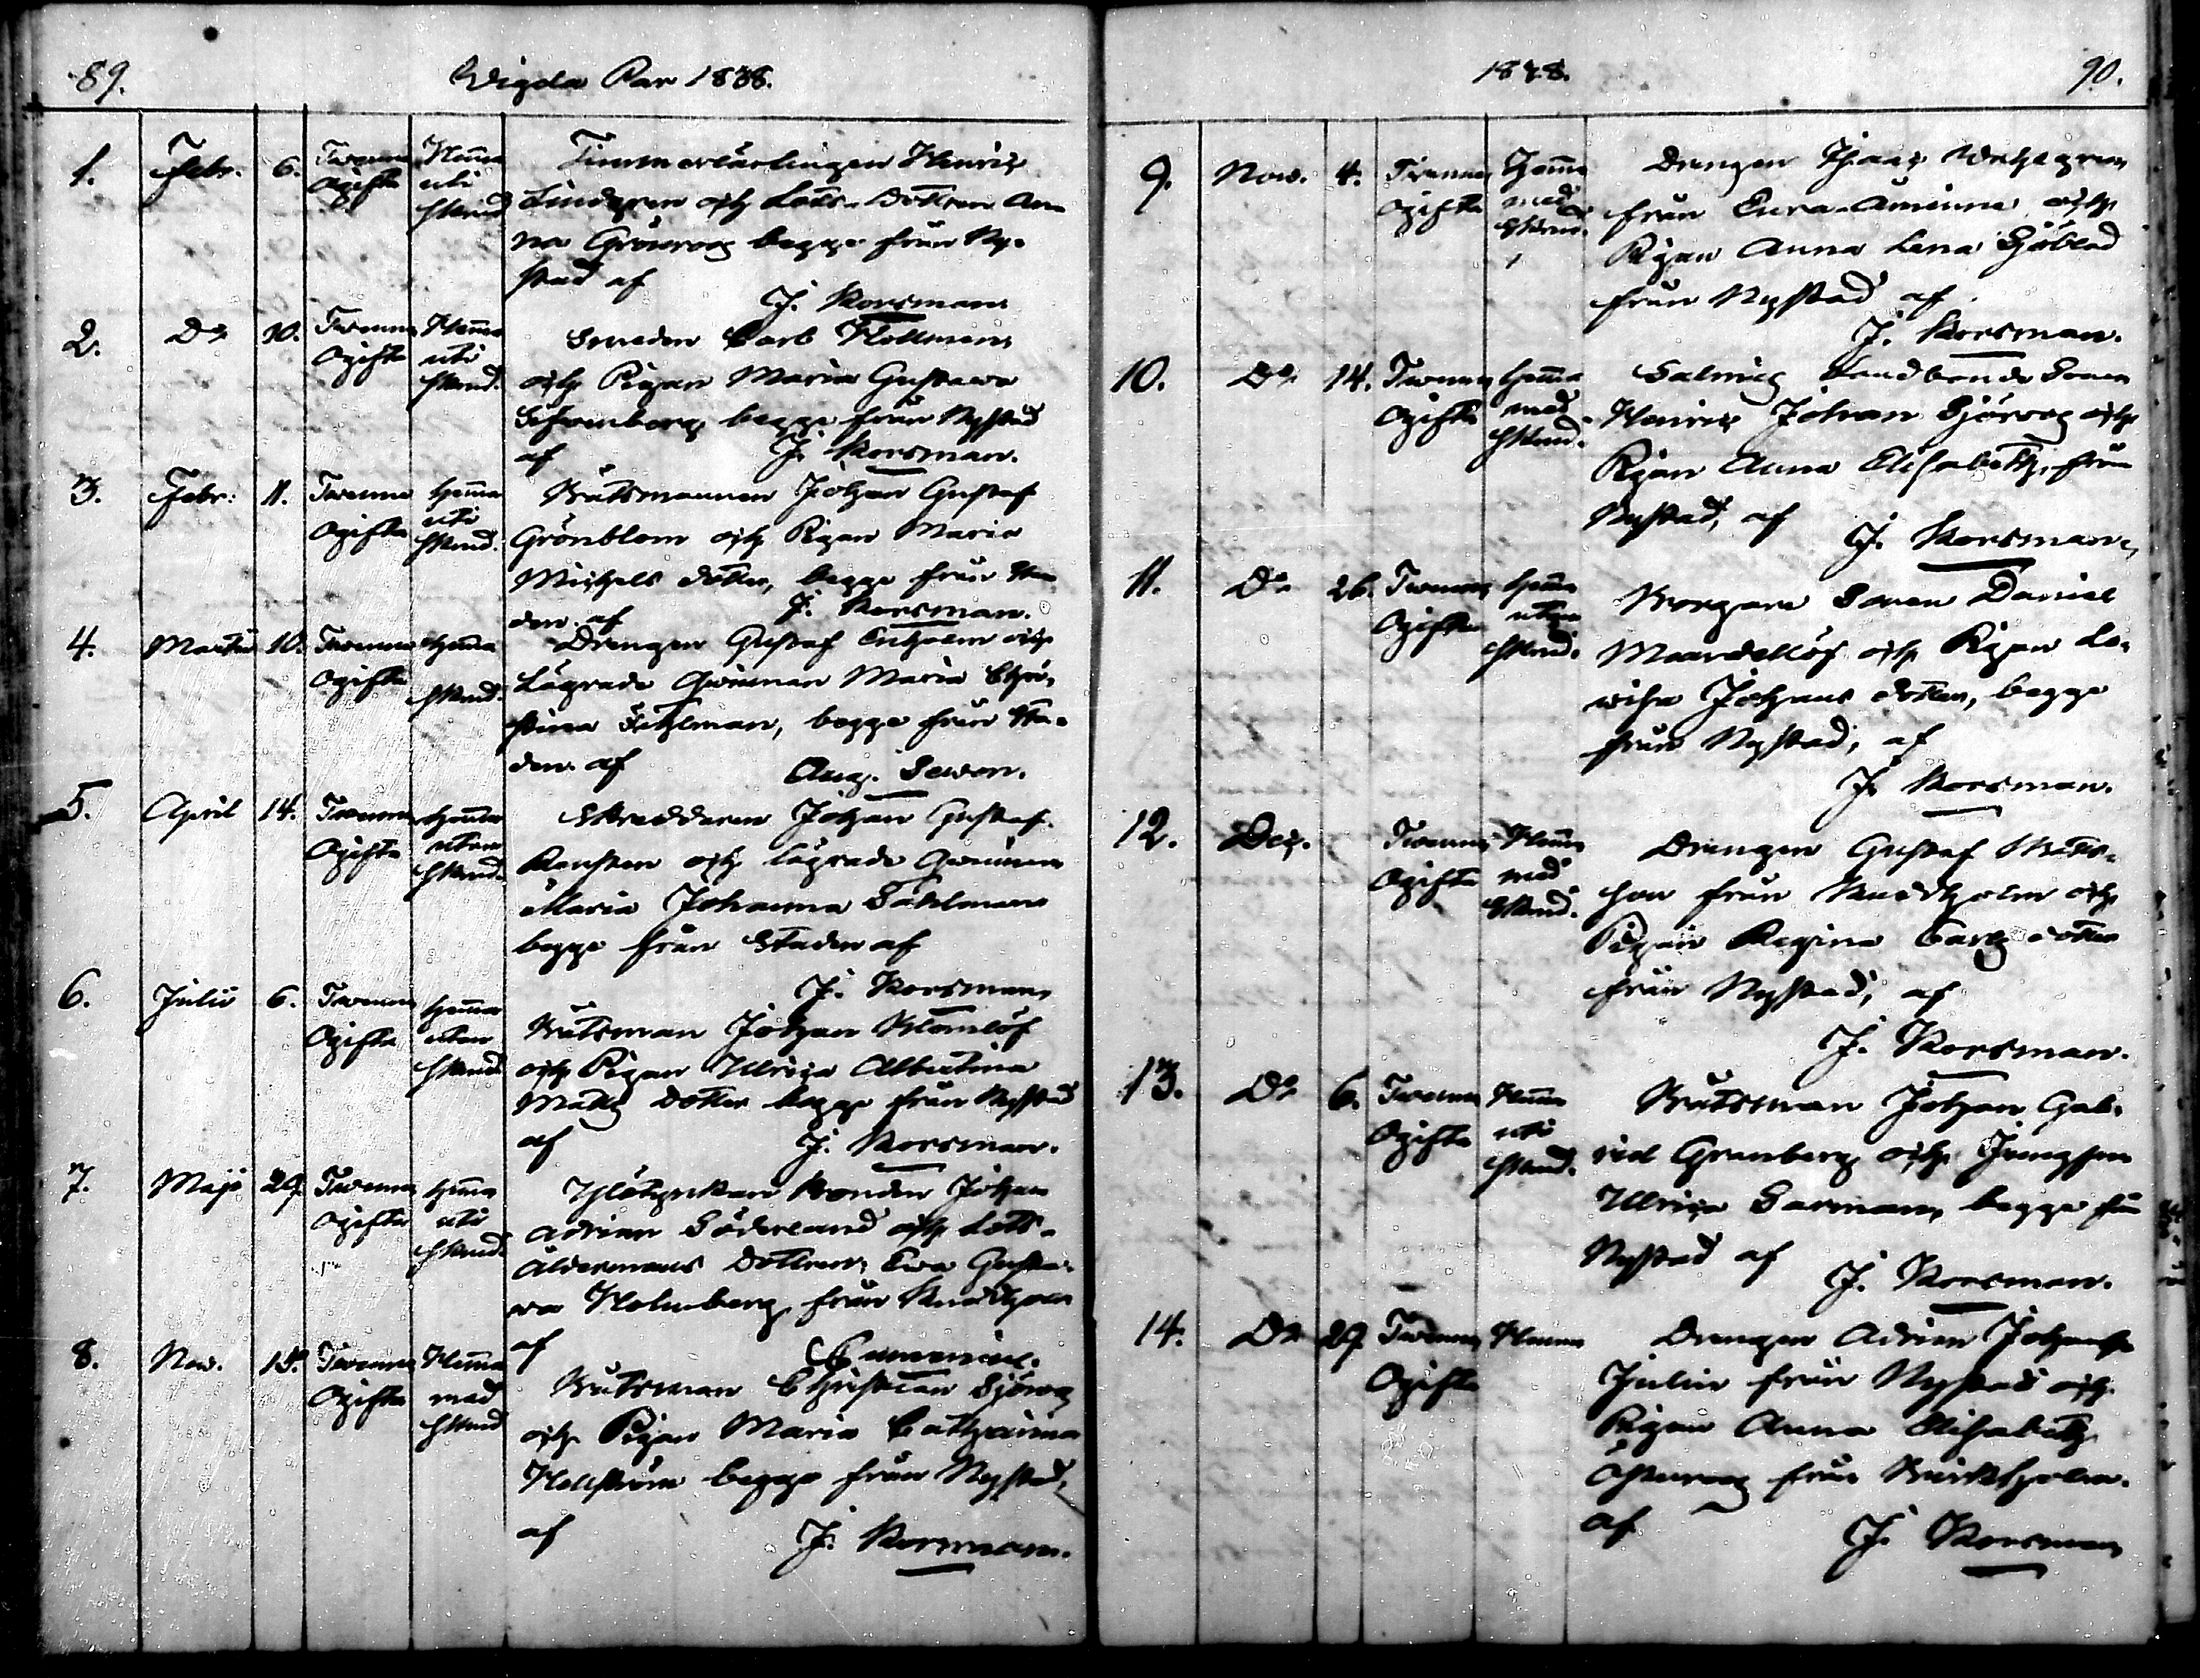 89.
Wigda Par 1838.
1. Febr. 6. Twenne Ogifta Hemma uti Stand
Timmerlärlingen Henric
Lindgren och Lots-Dottren An-
na Grönroos begge från Ny-
stad af
J. Korsman
2. Do 10. Twenne Ogifta Hemma uti Stånd.
Smeden Carl Hellman
och Pigan Maria Gustava
begge från Nystad
af J. Korsman.
3. Febr. 11. Twenne Ogifta Hemma uti Stånd.
Båtsmannen Johan Gustaf
Grönblom och Pigan Maria
Michels dotter, begge från Sta-
den af J. Korsman.
4. Martii 10. Twenne Ogifta Hemma Stånd.
Drengen Gustaf Enholm och
Lägrade Qwinnan Maria Chri-
stina begge från Sta-
den af
Aug.
5. April 14. Twenne Ogifta Hemma utom Stånd.
Skreddaren Johan Gustaf
och lägrade Qwinnan
Maria Johanna Sahlman
begge från Staden af
J. Korsman
6. Julii 6. Twenne Ogifta Hemma utom Stånd
Båtsman Johan Blomlöf
och Pigan Ulrica Albertina
Matts dotter begge från Nystad
af J. Korsman.
7. Maji 29. Twenne Ogifta Hemma uti Stånd.
Bonden Johan
Adrian Söderlund och Lots-
Åldermans Dottren Eva Gusta-
va Holmberg från
af
8. Nov. Twenne Ogifta Hemma med Stånd
Båtsman Christian Sjöroos
och Pigan Maria Catharina
Hellström begge från Nystad,
af J. Korsman.
1838.
90.
9. Nov. 4. Twenne Ogifta Hemma med Stånd.
Drengen Isaac Wahlgren
från och
Pigan Anna Lena Sjöblad
från Nystad af
J. Korsman.
10. Do 14. Twenne Ogifta Hemma med Stånd.
Landbonde Sonen
Henric Johan Sjöroos och
Pigan Anna Elisabeth, från
Nystad, af
J. Korsman.
11. Do 26. Twenne Ogifta Hemma utom Stånd.
Borgare Sonen Daniel
och Pigan Lo-
visa Johans dotter, begge
från Nystad, af
J. Korsman.
12. Dec. Twenne Ogifta Hemma med Stånd.
Drengen Gustaf Matts-
son från och
Pigan Regina Carls dotter
från Nystad, af
J. Korsman.
13. Do 6. Twenne Ogifta Hemma uti Stånd.
Båtsman Johan Gab-
riel Granberg och Jungfrun
Ulrica Sarman, begge från
Nystad af
J. Korsman.
14. Do 29. Twenne Ogifta Hemma
Drengen Adrian Johansson
Julin från Nystad och
Pigan Anna Elisabeth
Österroos från
af
J. Korsman